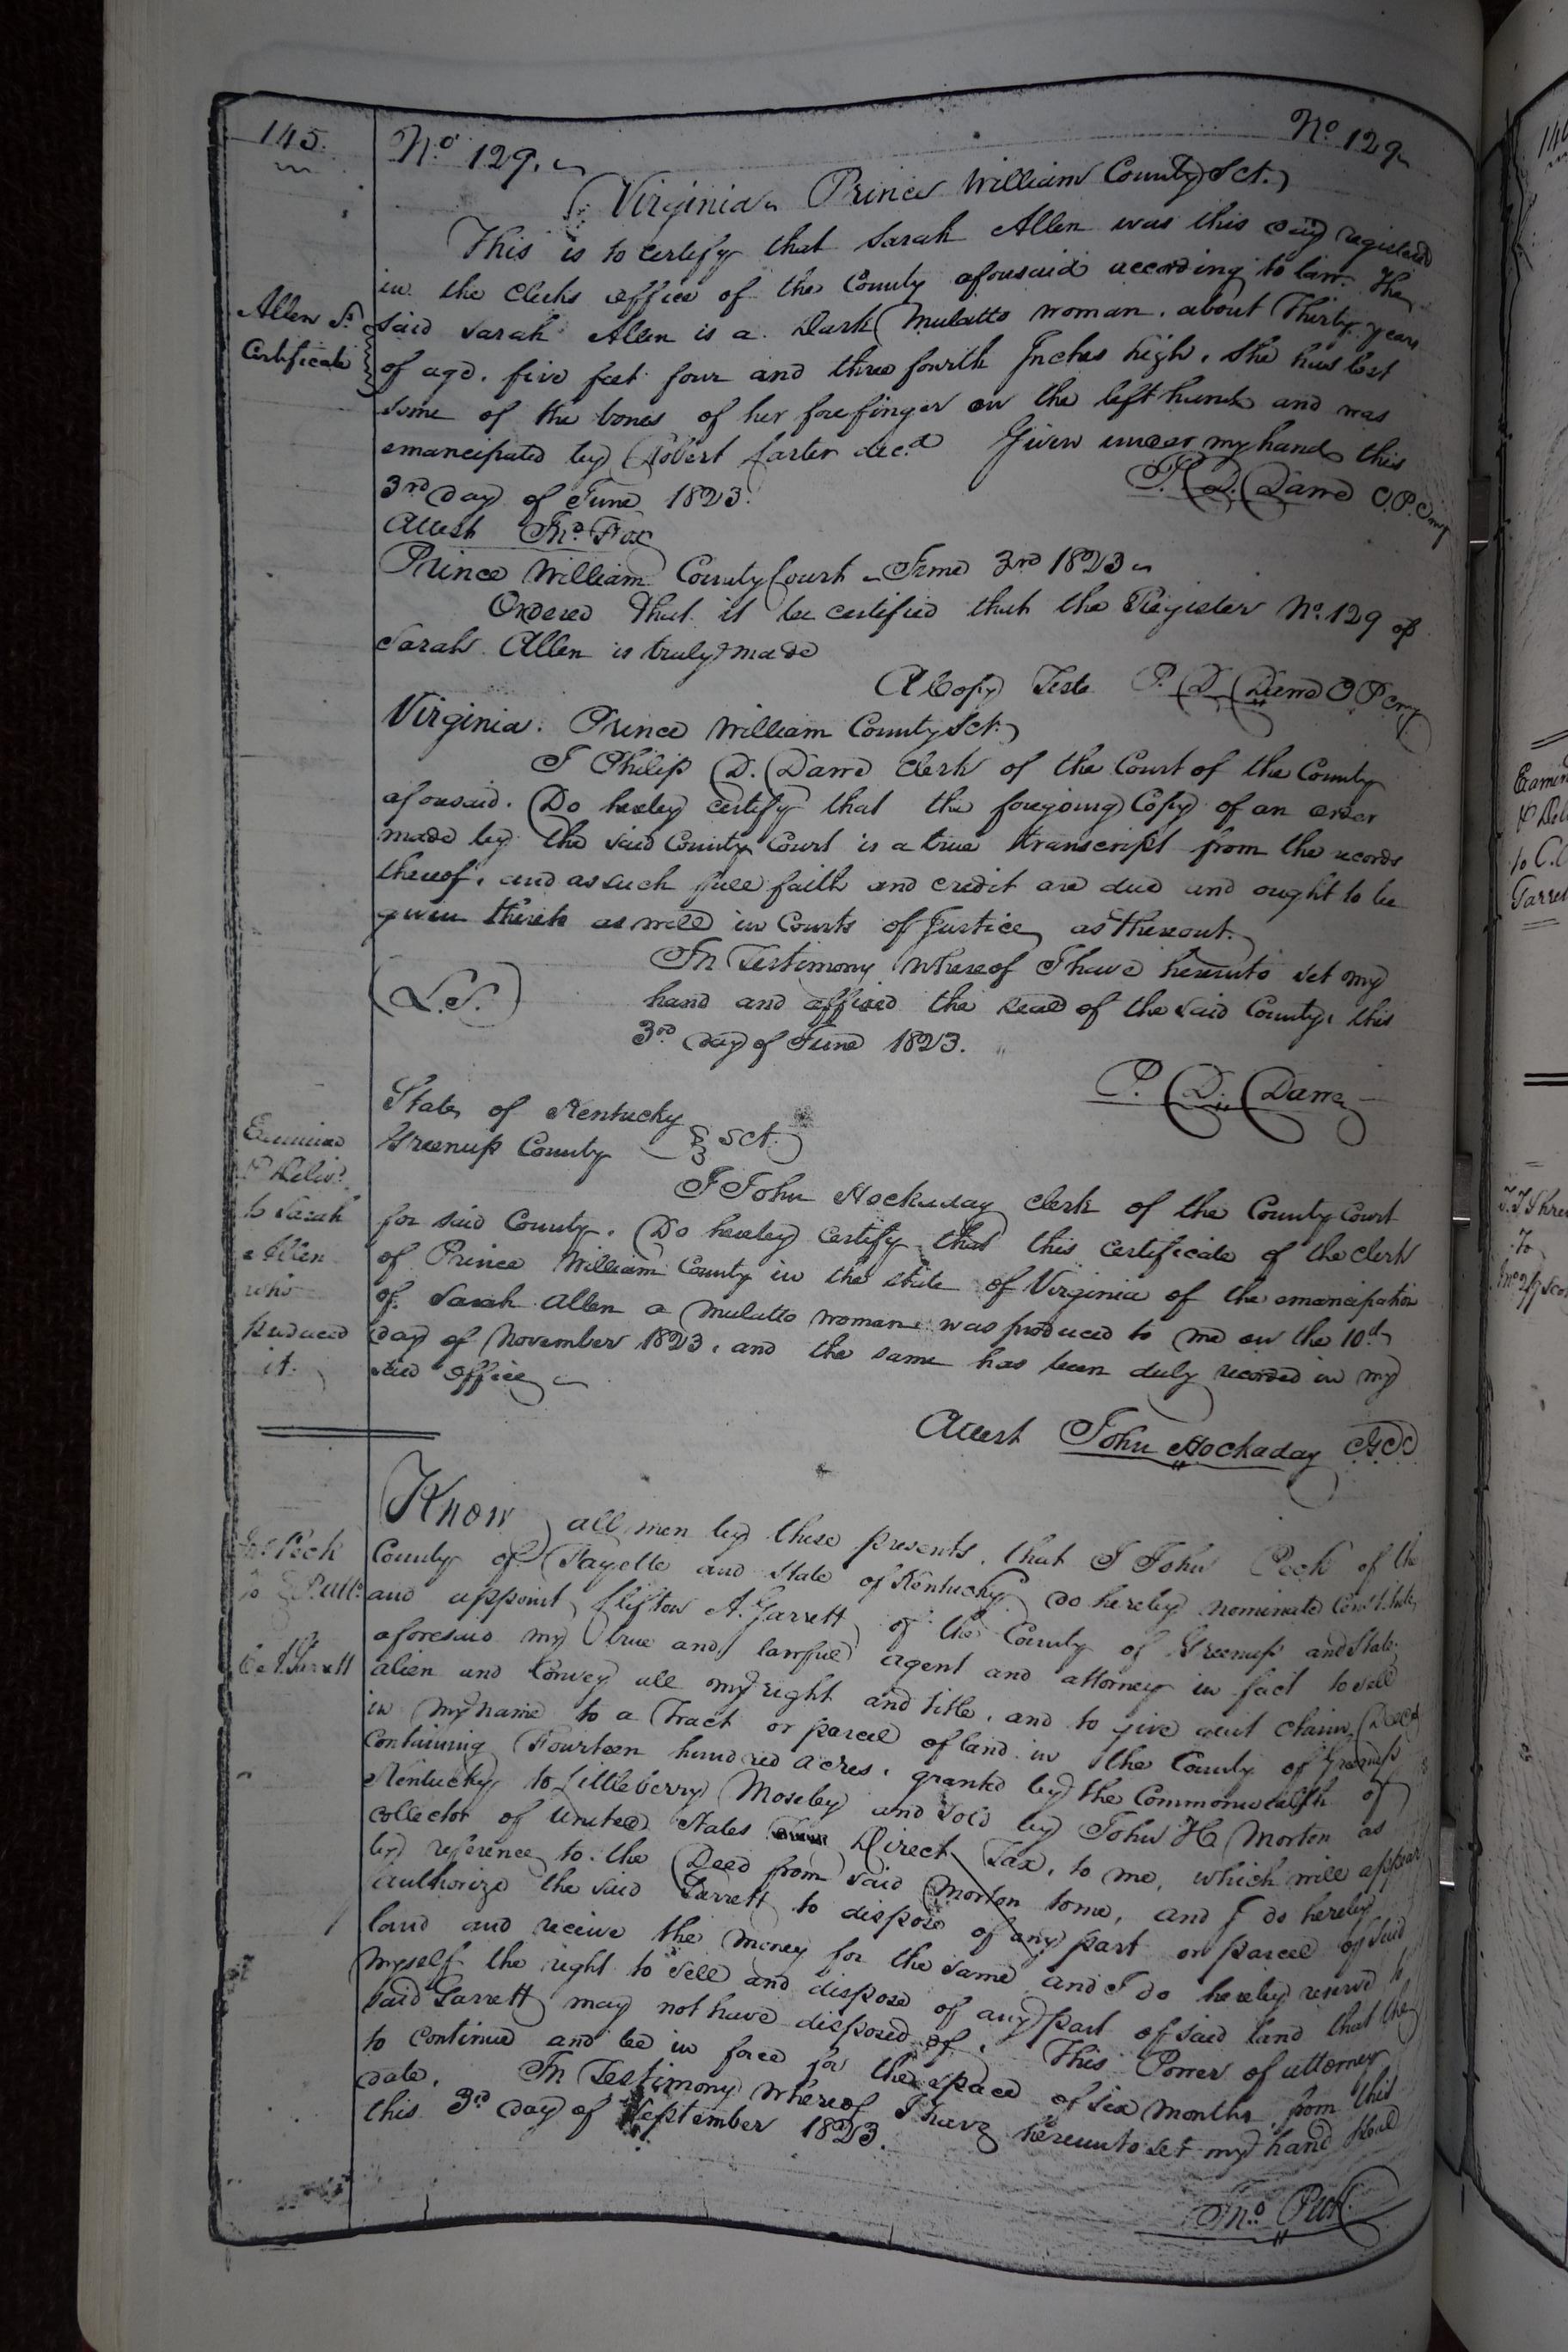 145.
No 129.
No 129
Virginia Prince William County Sct.
This is to certify that Sarah Allen was this day registered
in the clerks office of the County aforesaid according to law. The
Allen S.
Certificate
said Sarah Allen is a Dark Mulatto woman. about Thirty years
of age. five feet four and three fourth Inches high. She has lost
some of the bones of her forefinger on the left hand and was
emancipated by Robert Carter decd Given under my hand this
3rd day of June 1823.
P. D. Dawe C.P. Cway
Attest Jno. Fox
Prince William County Court June 3rd 1823
Ordered that it be certified that the Register No. 129 of
Sarah Allen is truly made
A Copy Teste P. D. Dawe
Virginia. Prince William County Sct.
I Philip D. Dawe clerk of the Court of the County
aforesaid. Do hereby certify that the foregoing Copy of an order
made by the said County Court is a true transcript from the records
thereof. and as such full faith and credit are due and ought to be
given thereto as well in Courts of Justice as thereout.
In Testimony whereof I have hereunto set my
(L.S.)
hand and affixed the seal of the said County. this
3rd day of June 1823.
P. D. Dawe
State of Kentucky
Greenup County Sct.
Examined
& Delivd.
to Sarah
Allen
who
produced
it.
I John Hockaday clerk of the County Court
for said County. Do hereby certify that this certificate of the clerk
of Prince William County in the State of Virginia of the emancipation
of Sarah Allen a Mulatto woman was produced to me on the 10th
day of November 1823. and the same has been duly recorded in my
said office
Attest John Hockaday
Jno. Peck
to
C. A. Garrett
Know all men by these presents. that I John Peck of the
County of Fayette and State of Kentucky do hereby nominate Constitute
and appoint Clifton A. Garrett of the County of Greenup and State
aforesaid my true and lawful agent and attorney in fact to sell
alien and Convey all my right and title. and to give quit claim Deed
in my name to a Tract or parcel of land in the County of Greenup
Containing Fourteen hundred acres. granted by the Commonwealth of
Kentucky to Littleberry Moseby and sold by John H Morton as
collector of United States Direct Tax. to me, which will appear
by reference to the Deed from said Morton to me, and I do hereby
authorize the said Garrett to dispose of any part or parcel of said
land and receive the money for the same and I do hereby reserve to
myself the right to sell and dispose of any part of said land that the
said Garrett may not have disposed of. This Power of attorney
to continue and be in force for the space of six months from this
date. In Testimony whereof I have hereunto set my hand seal
this 3rd day of September 1823.
Jno. Peck